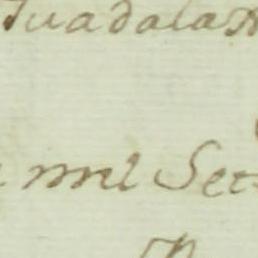 Guadalax
mil Set